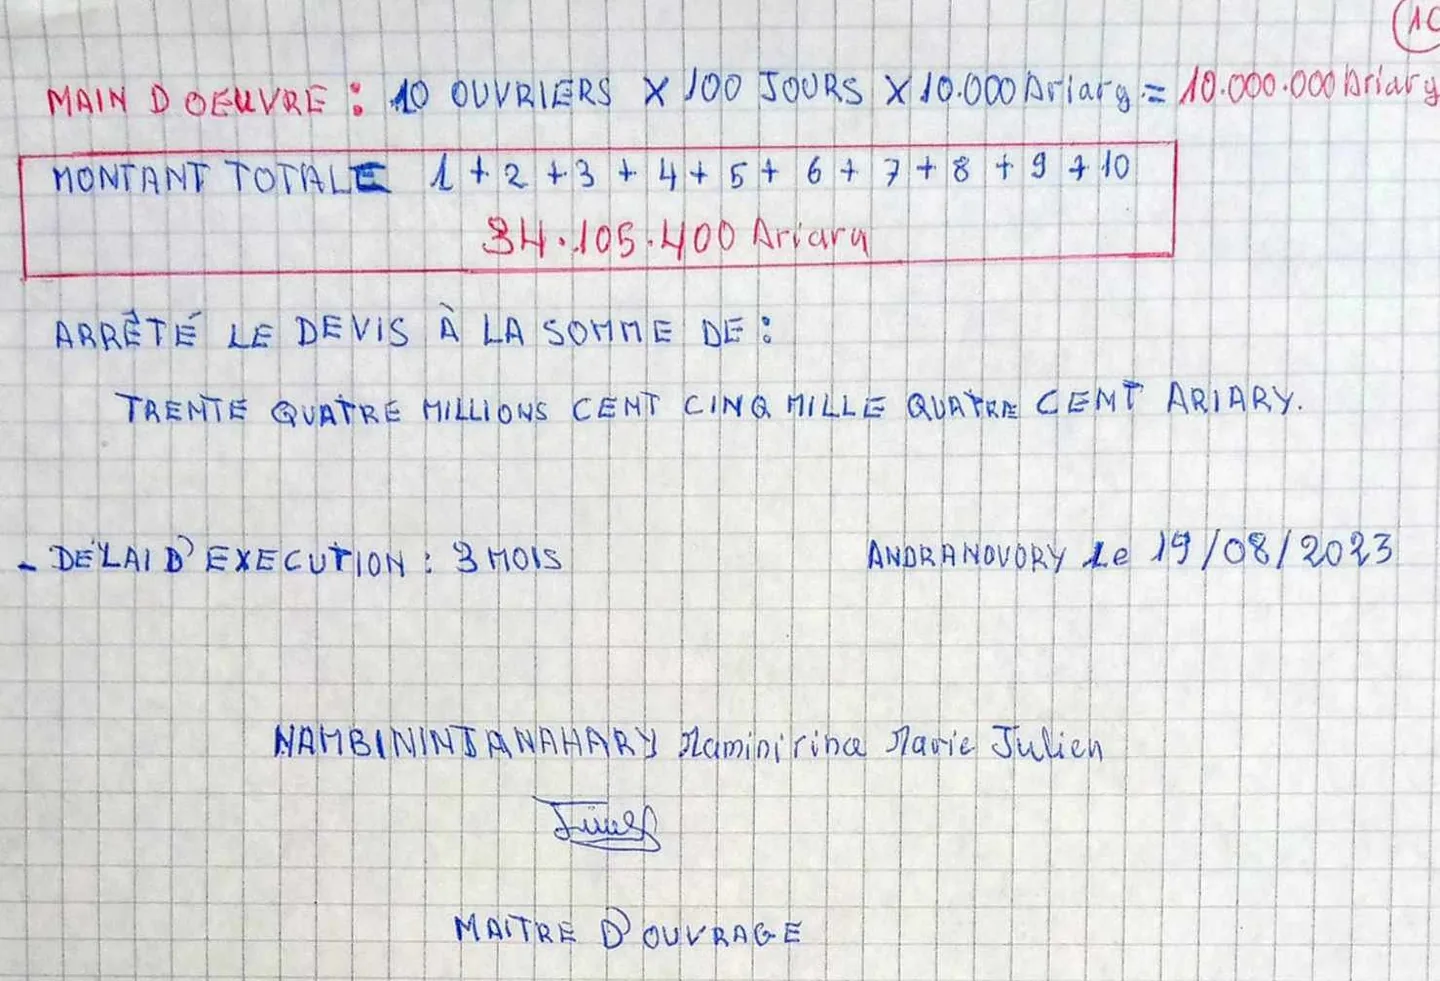 10
MAIN D OEUVRE : 10 OUVRIERS X 100 JOURS X 10.000 Ariary = 10.000.000 Ariary
MONTANT TOTALE 1 + 2 + 3 + 4 + 5 + 6 + 7 + 8 + 9 + 10
34.105.400 Ariary
ARRÊTÉ LE DEVIS À LA SOMME DE :
TRENTE QUATRE MILLIONS CENT CINQ MILLE QUATRE CENT ARIARY.
- DÉLAI D'EXECUTION : 3 MOIS ANDRANOVORY Le 19/08/2023
NAMBININTSANAHARY Maminirina Marie Julien
MAITRE D'OUVRAGE